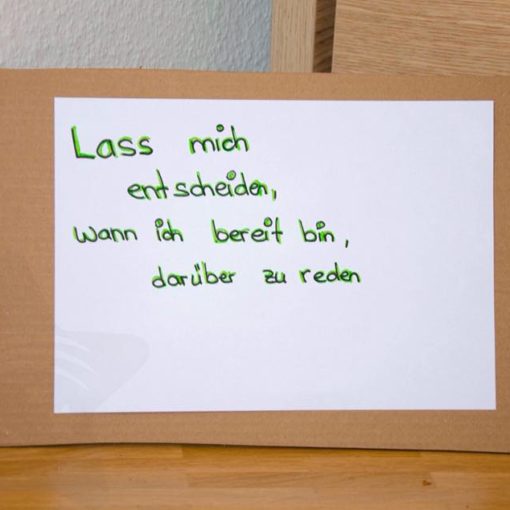 Lass mich
entscheiden,
wann ich bereit bin,
darüber zu reden